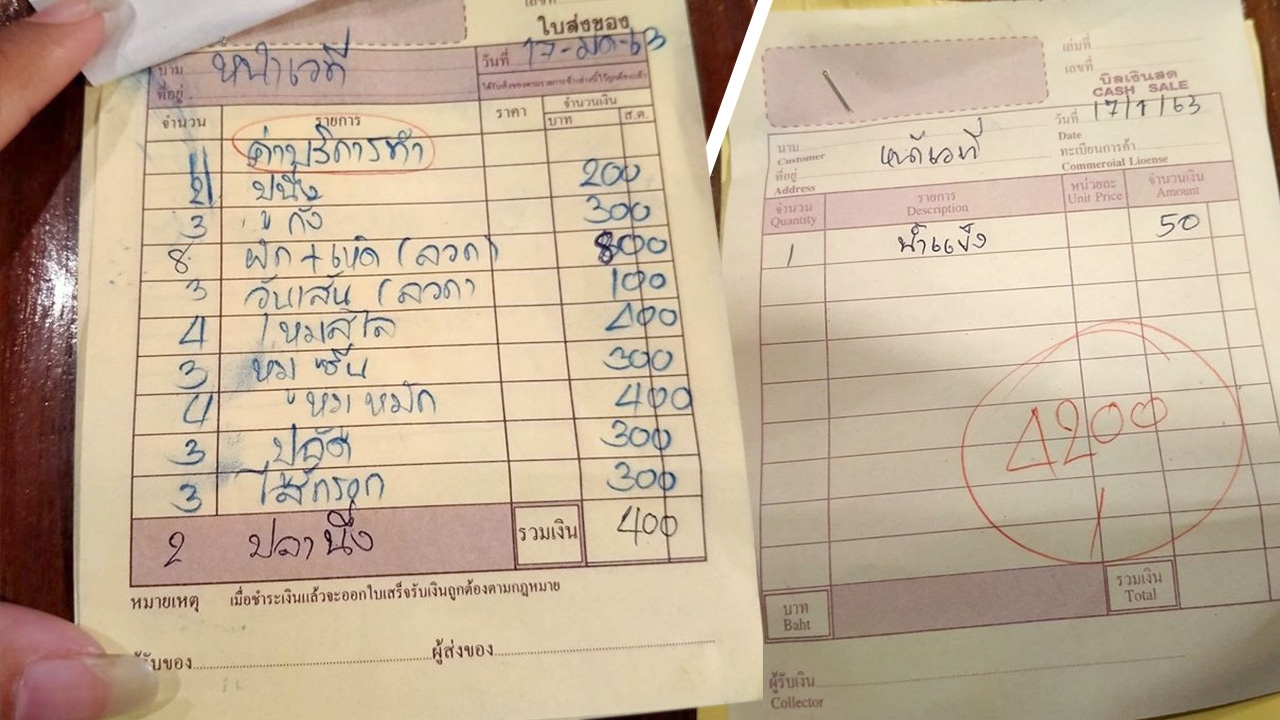 ใบส่งของ
นาม หน้าเวที วันที่ 17-มค-63
ที่อยู่
จำนวน รายการ ราคา จำนวนเงิน
บาท ส.ต.
ค่าบริการทำ
2 ปูนึ่ง 200
3 " กุ้ง 300
8 ผัก+เห็ด (ลวก) 800
3 วุ้นเส้น (ลวก) 100
4 400
3 300
4 400
3 300
3 ไส้กรอก 300
2 ปลานึ่ง รวมเงิน 400
หมายเหตุ เมื่อชำระเงินแล้วจะออกใบเสร็จรับเงินถูกต้องตามกฎหมาย
ผู้รับของ ผู้ส่งของ
เล่มที่
เลขที่
บิลเงินสด
CASH SALE
วันที่ 17/1/63
Date
นาม หน้าเวที
Customer
ทะเบียนการค้า
Commercial License
ที่อยู่
Address
จำนวน รายการ หน่วยละ จำนวนเงิน
Quantity Description Unit Price Amount
1 น้ำแข็ง 50
4200
บาท รวมเงิน
Baht Total
ผู้รับเงิน
Collector